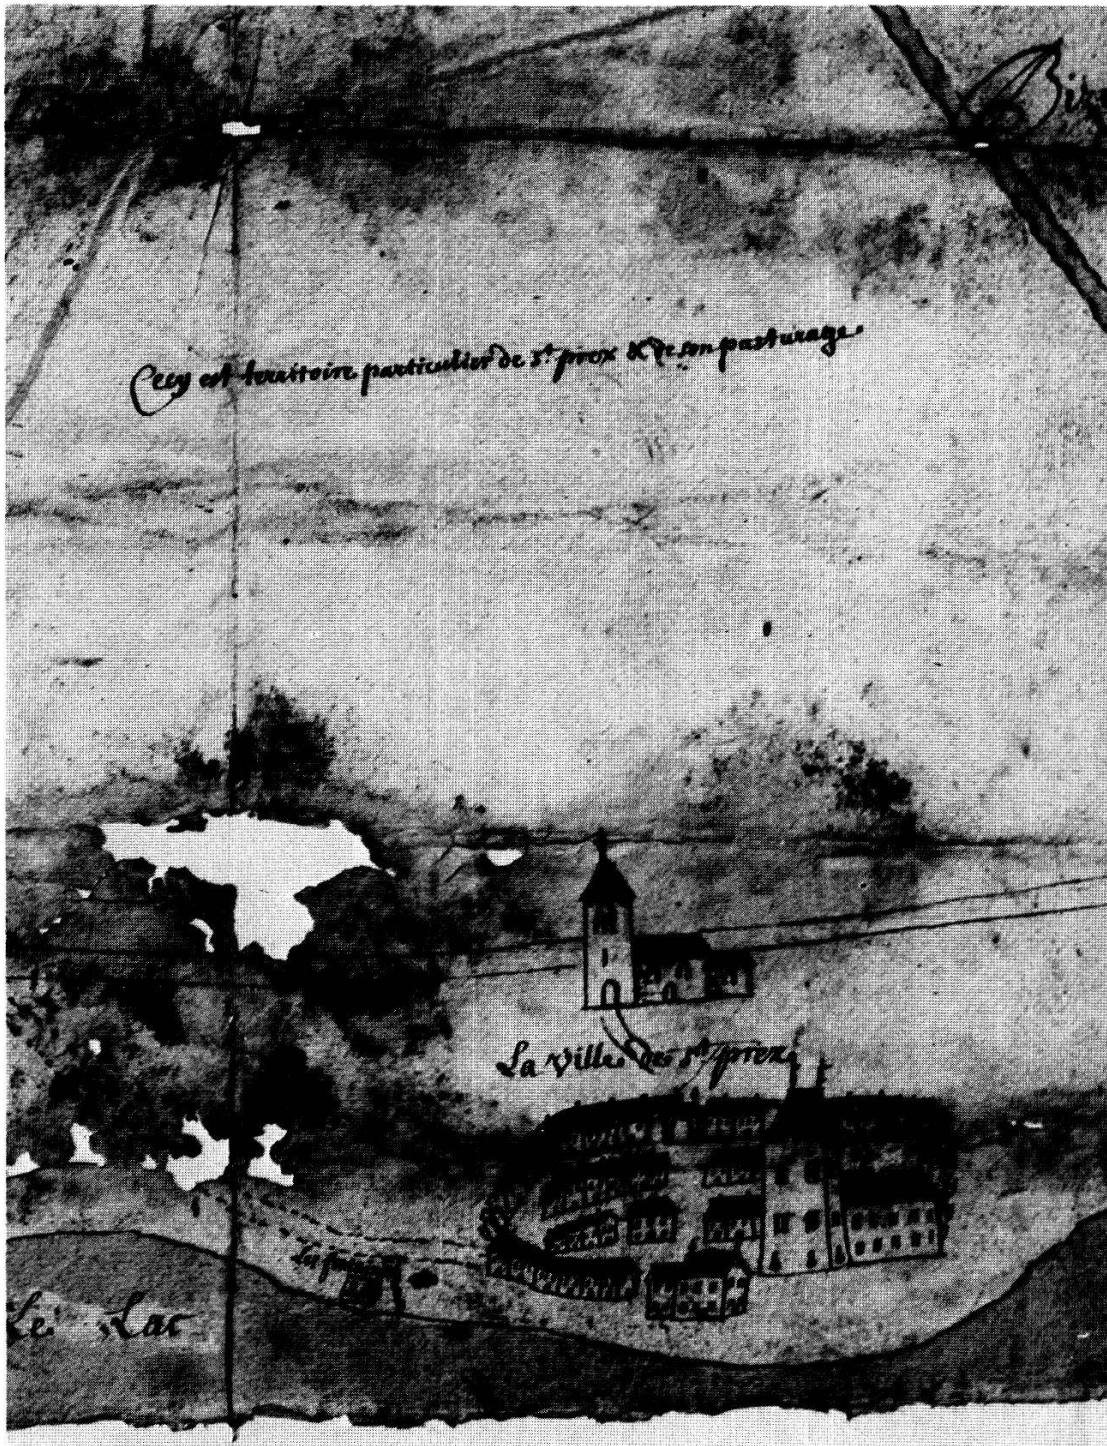 Cecy est territoire particulier de St prex & de son pasturage
La Ville de St prex
Le Lac